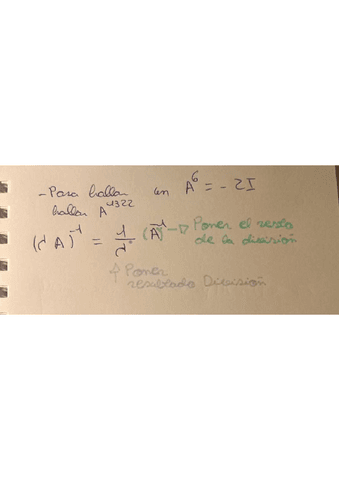 - Para hallar un A^6 = - 2I
hallar A^4322
(λ A)^-1 = 1/λ (A^-1) → Poner el resto
de la division
↑ Poner
resultado Division